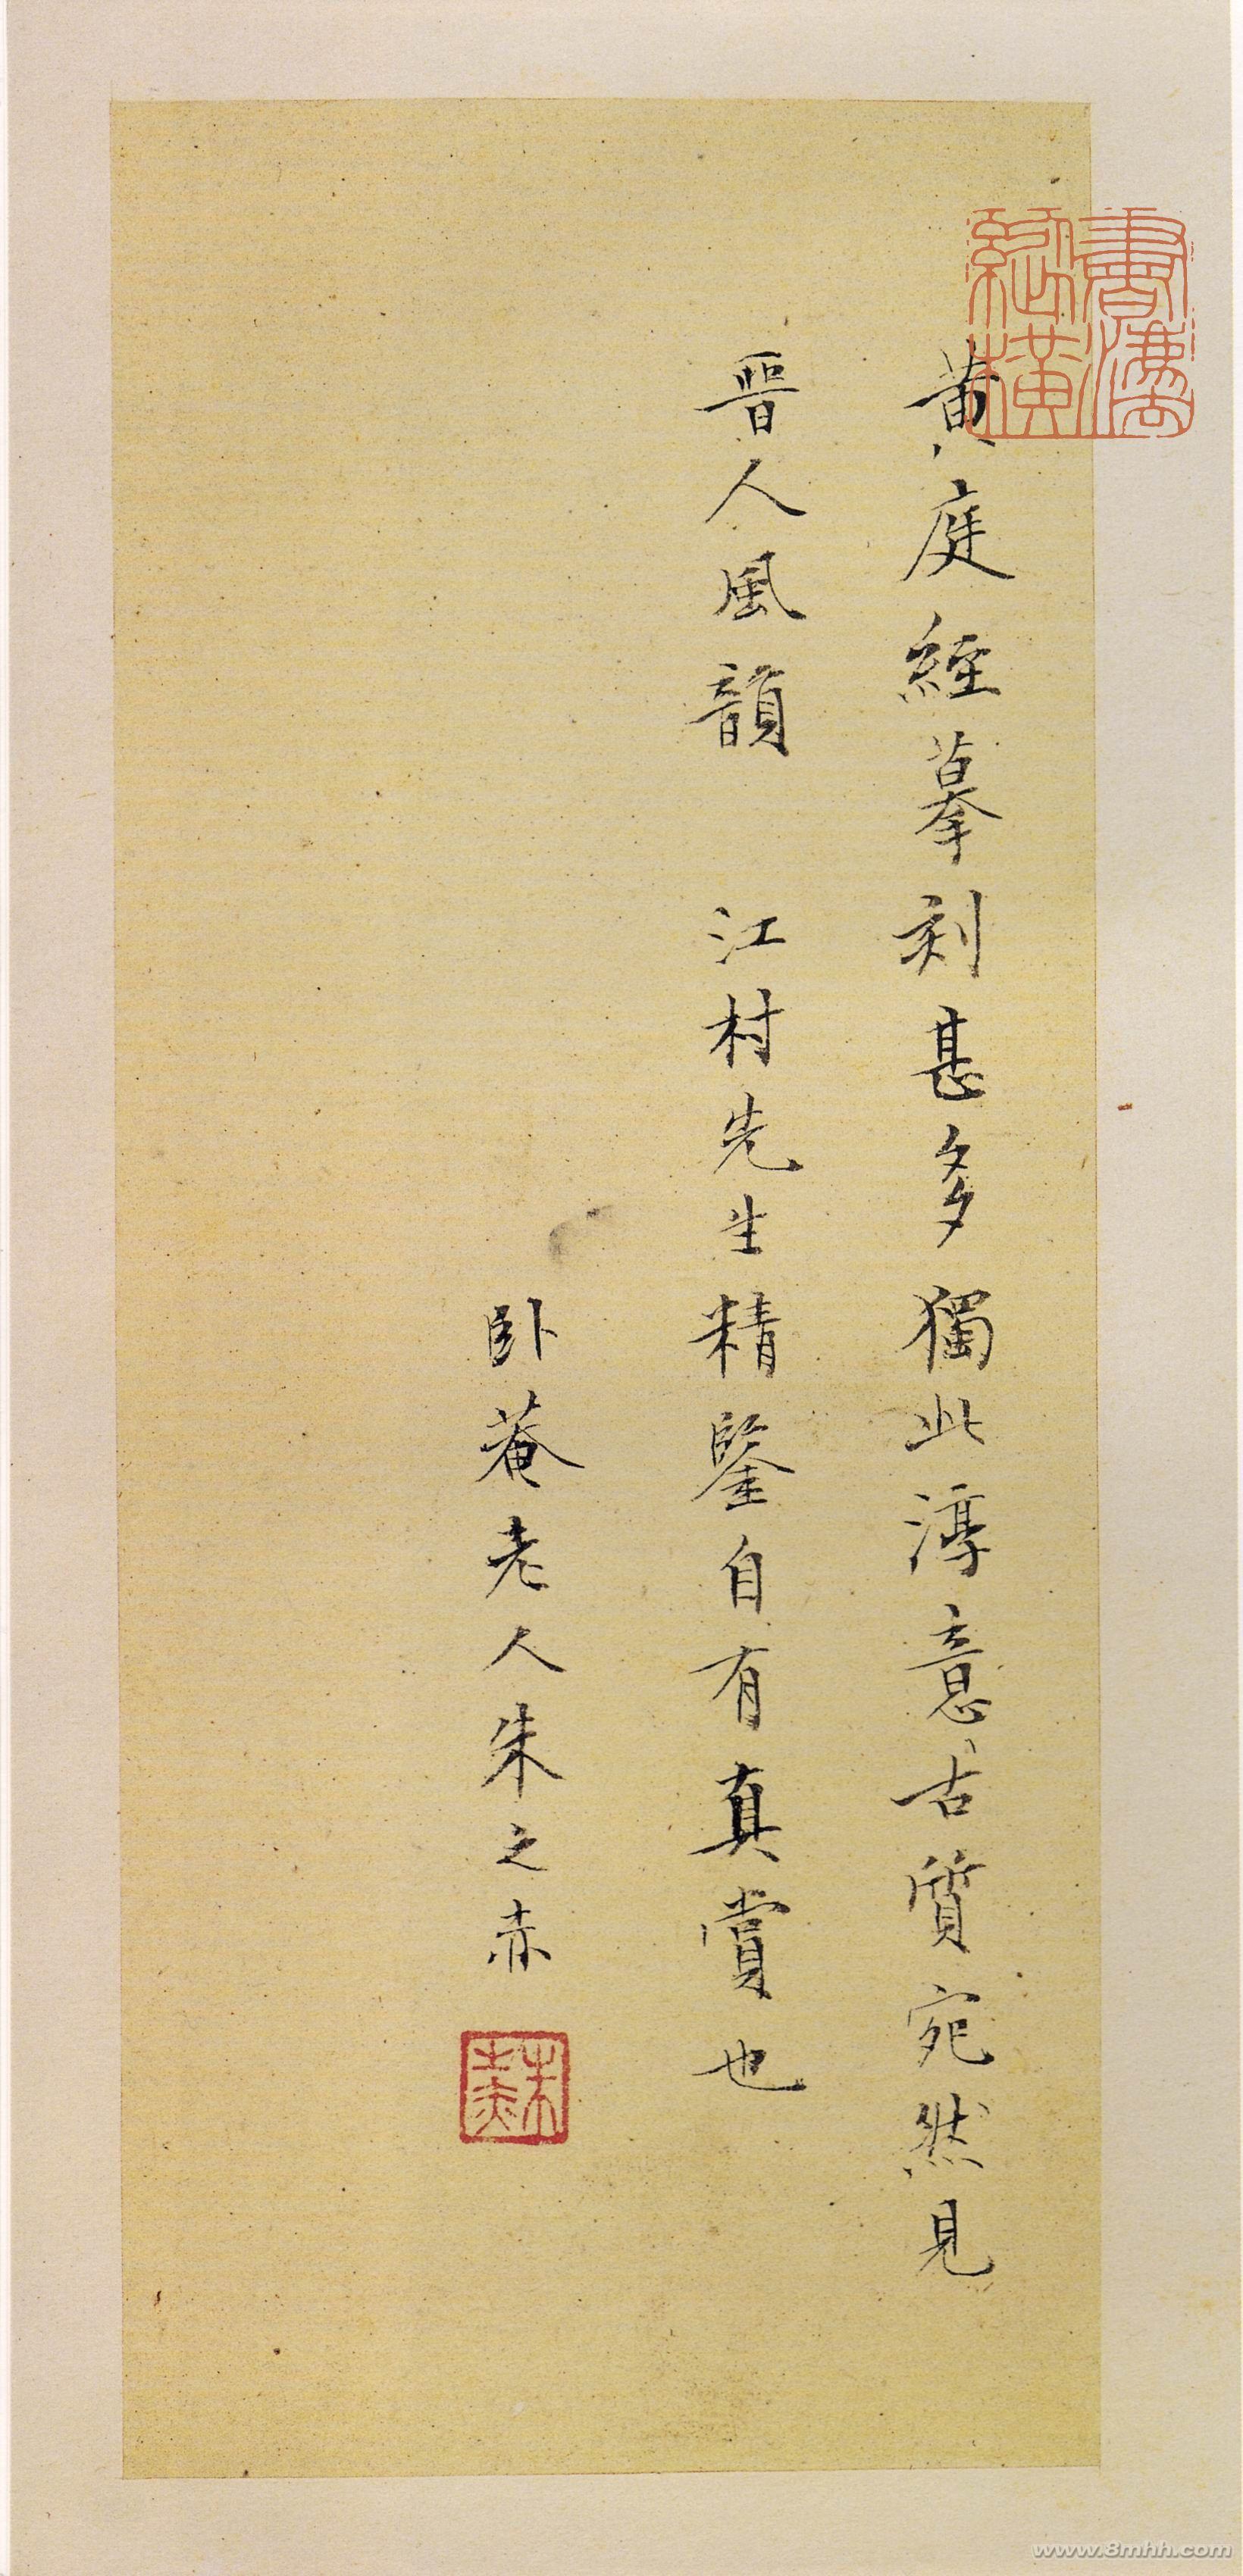 黄庭經摹刻甚多獨此淳意古質宛然見
晉人風韻 江村先生精鑒自有真賞也
卧菴老人朱之赤
www.8mhh.com